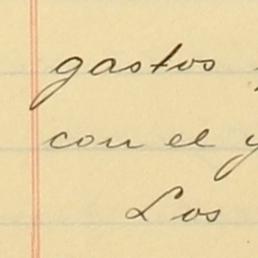 gastos
con el y
Los